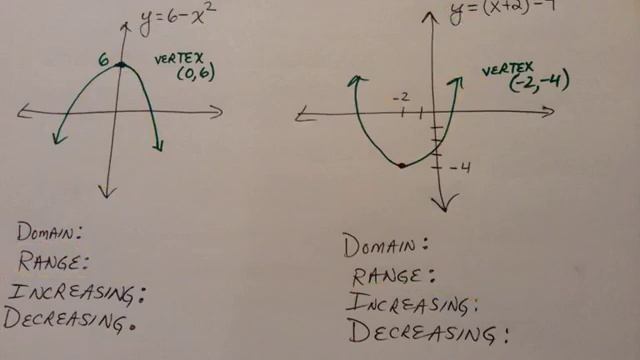 y = 6 - x²
6
VERTEX
(0,6)
DOMAIN:
RANGE:
INCREASING:
DECREASING.
VERTEX
(-2,-4)
-2
-4
DOMAIN:
RANGE:
INCREASING:
DECREASING: